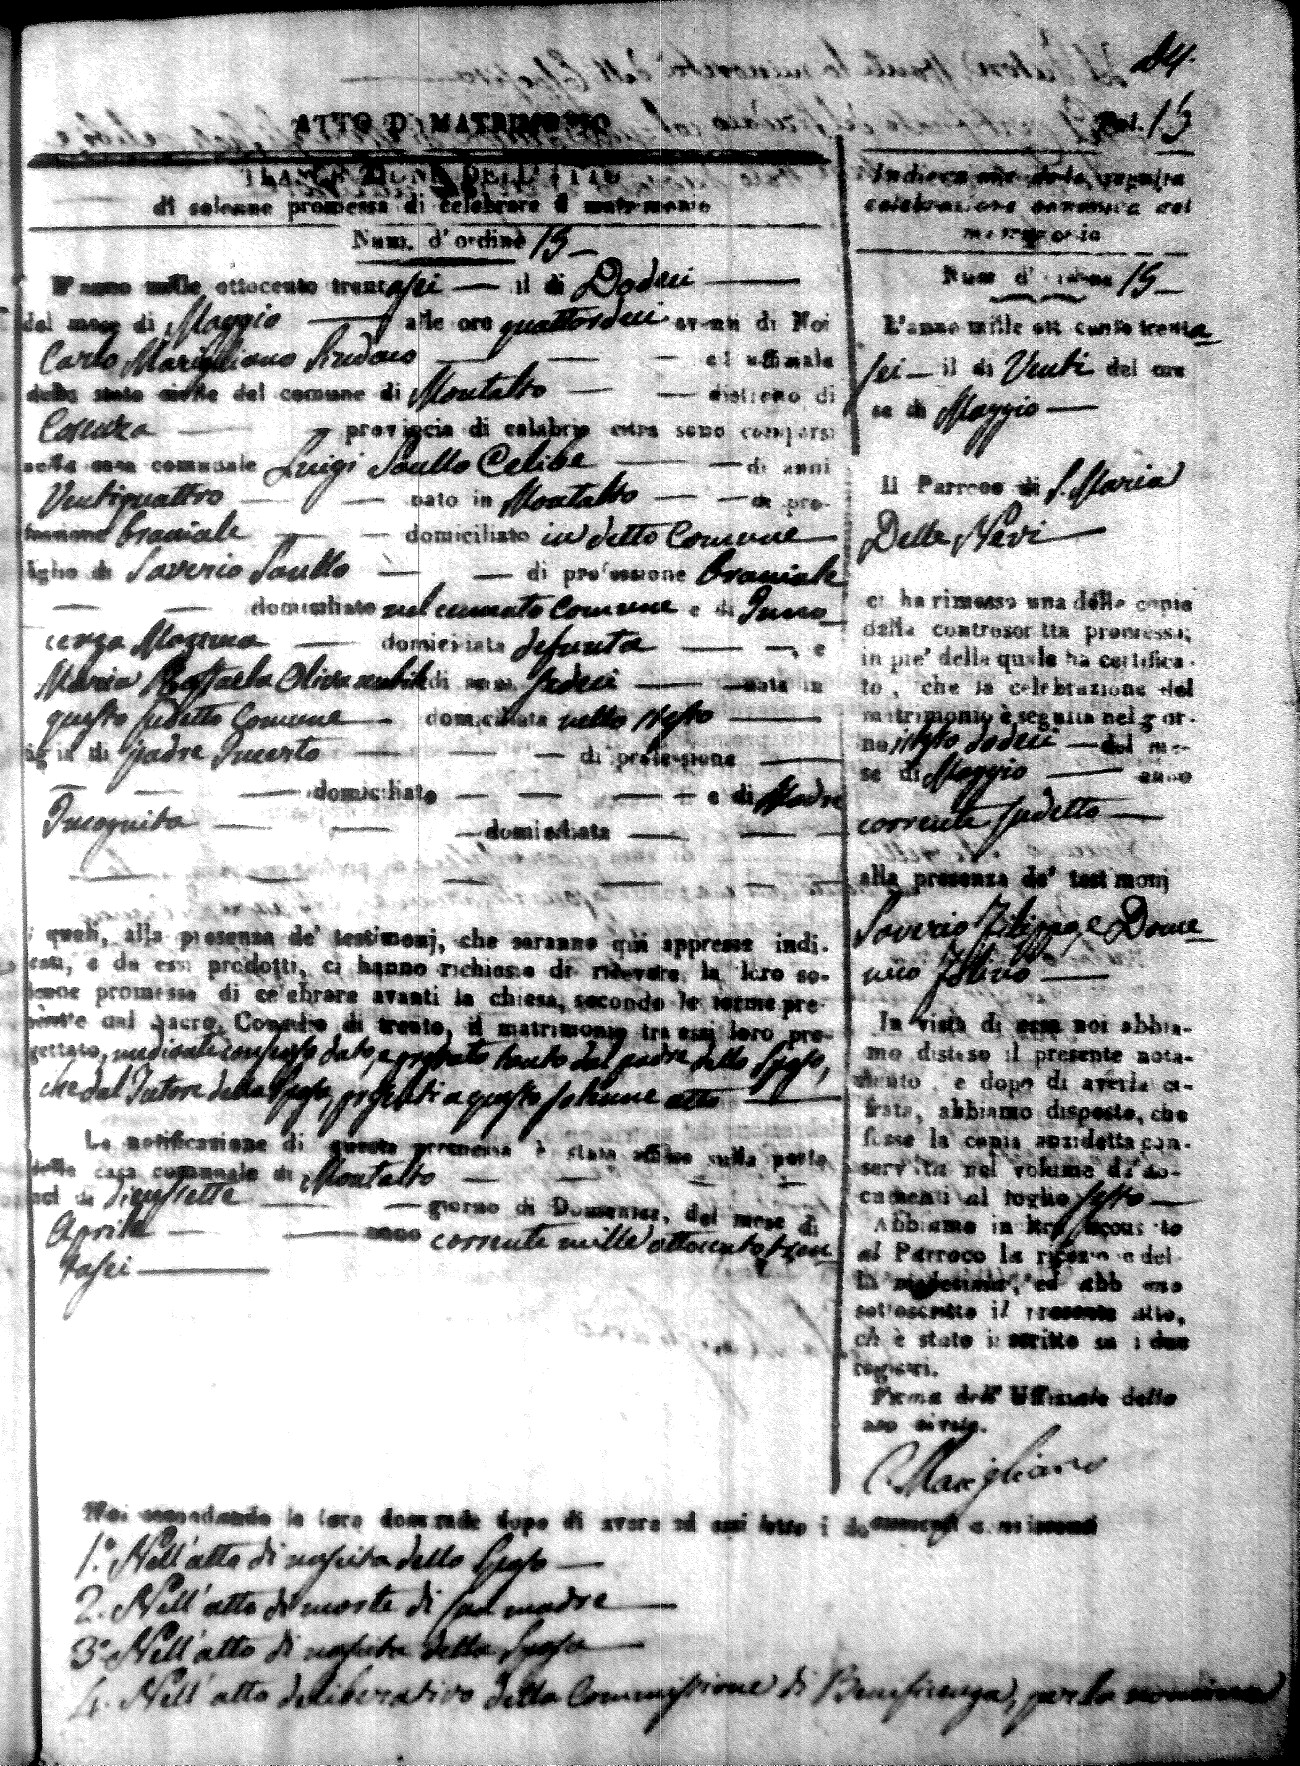 14.
Fol. 15
ATTO DI MATRIMONIO
TRASCRIZIONE DELL' ATTO
di solenne promessa di celebrare il matrimonio
Num. d'ordine 15
L'anno mille ottocento trentasei il di Dodeci
del mese di Maggio alle ore quattordeci avanti di Noi
Carlo Marigliano Sindaco ed uffiziale
dello stato civile del comune di Montalto distretto di
Cosenza provincia di calabria citra sono comparsi
nella casa comunale Luigi Saullo Celibe di anni
Ventiquattro nato in Montalto di pro-
fessione Braciale domiciliato in detto Comune
figlio di Saverio Saullo di professione Braciale
domiciliato nel cennato Comune e di Inno
cenza domiciliata defunta e
Maria Raffaela Oliva nubile di anni sedeci nata in
questo sudetto Comune domiciliata nello stesso
figlia di padre Incerto di professione
domiciliato e di Madre
Incognita domiciliata
i quali, alla presenza de' testimonj, che saranno qui appresso indi-
cati, e da essi prodotti, ci hanno richiesto di ricevere la loro so-
lenne promessa di celebrare avanti la chiesa, secondo le forme pre-
scritte dal Sacro Concilio di trento, il matrimonio tra essi loro pro-
gettato, mediante consenso dato, e prestato tanto dal padre dello Sposo,
che dal Tutore della Sposa, presenti a questo solenne atto
La notificazione di questa promessa è stata affissa sulla porta
della casa comunale di Montalto
nel di diecissette giorno di Domenica, del mese di
Aprile anno corrente mille ottocento tren
tasei
Indicazione della seguita
celebrazione canonica del
matrimonio
Num. d'ordine 15
L'anno mille ottocento trenta
sei il di Venti del me
se di Maggio
Il Parroco di S. Maria
Della Nevi
ci ha rimesso una delle copie
dalla controscritta promessa;
in piè della quale ha certifica-
to, che la celebrazione del
matrimonio è seguita nel gior-
no istesso dodeci del me-
se di Maggio anno
corrente sudetto
alla presenza de' testimonj
Saverio Filippo, e Dome
nico
In vista di essa noi abbia-
mo disteso il presente nota-
mento, e dopo di averla ci-
frata, abbiamo disposto, che
fusse la copia anzidetta con-
servata nel volume di do-
cumenti al foglio sesto
Abbiamo in oltre accusato
al Parroco la ricezione del-
la medesima, ed abbiamo
sottoscritto il presente atto,
ch' è stato iscritto su i due
registri.
Firma dell' Uffiziale dello
stato civile.
C. Marigliano
Noi secondando la loro domanda dopo di avere ad essi letto i documenti consistenti
1.° Nell'atto di nascita dello Sposo
2. Nell'atto di morte di sua madre
3° Nell'atto di nascita della Sposa
4. Nell'atto deliberativo della Commissione di Beneficenza, per la